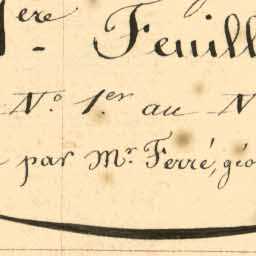 1ère Feuill
N° 1.er au N
par Mr. Ferré, géo